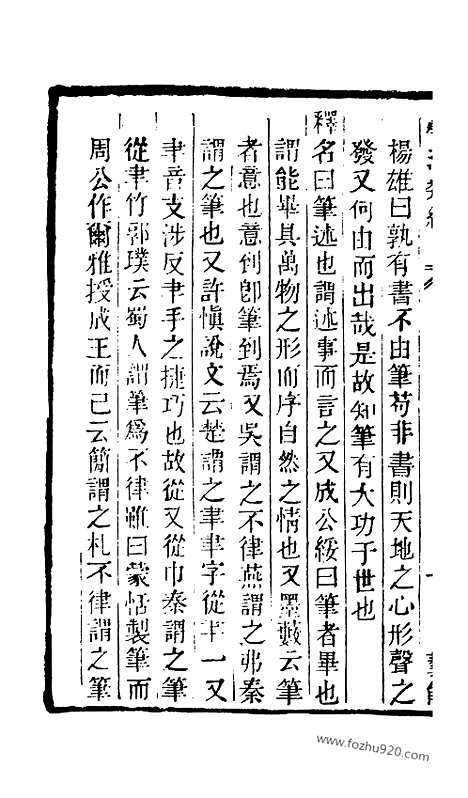 楊雄曰孰有書不由筆苟非書則天地之心形聲之
發又何由而出哉是故知筆有大功于世也
釋名曰筆述也謂述事而言之又成公綏曰筆者畢也
謂能畢具萬物之形而序自然之情也又墨藪云筆
者意也意到卽筆到焉又吳謂之不律燕謂之弗秦
謂之筆也又許愼說文云楚謂之聿聿字從一又
聿音支涉反聿手之捷巧也故從又從巾秦謂之筆
從聿竹郭璞云蜀人謂筆爲不律雖曰蒙恬製筆而
周公作爾雅授成王而已云簡謂之札不律謂之筆
www.fozhu920.com